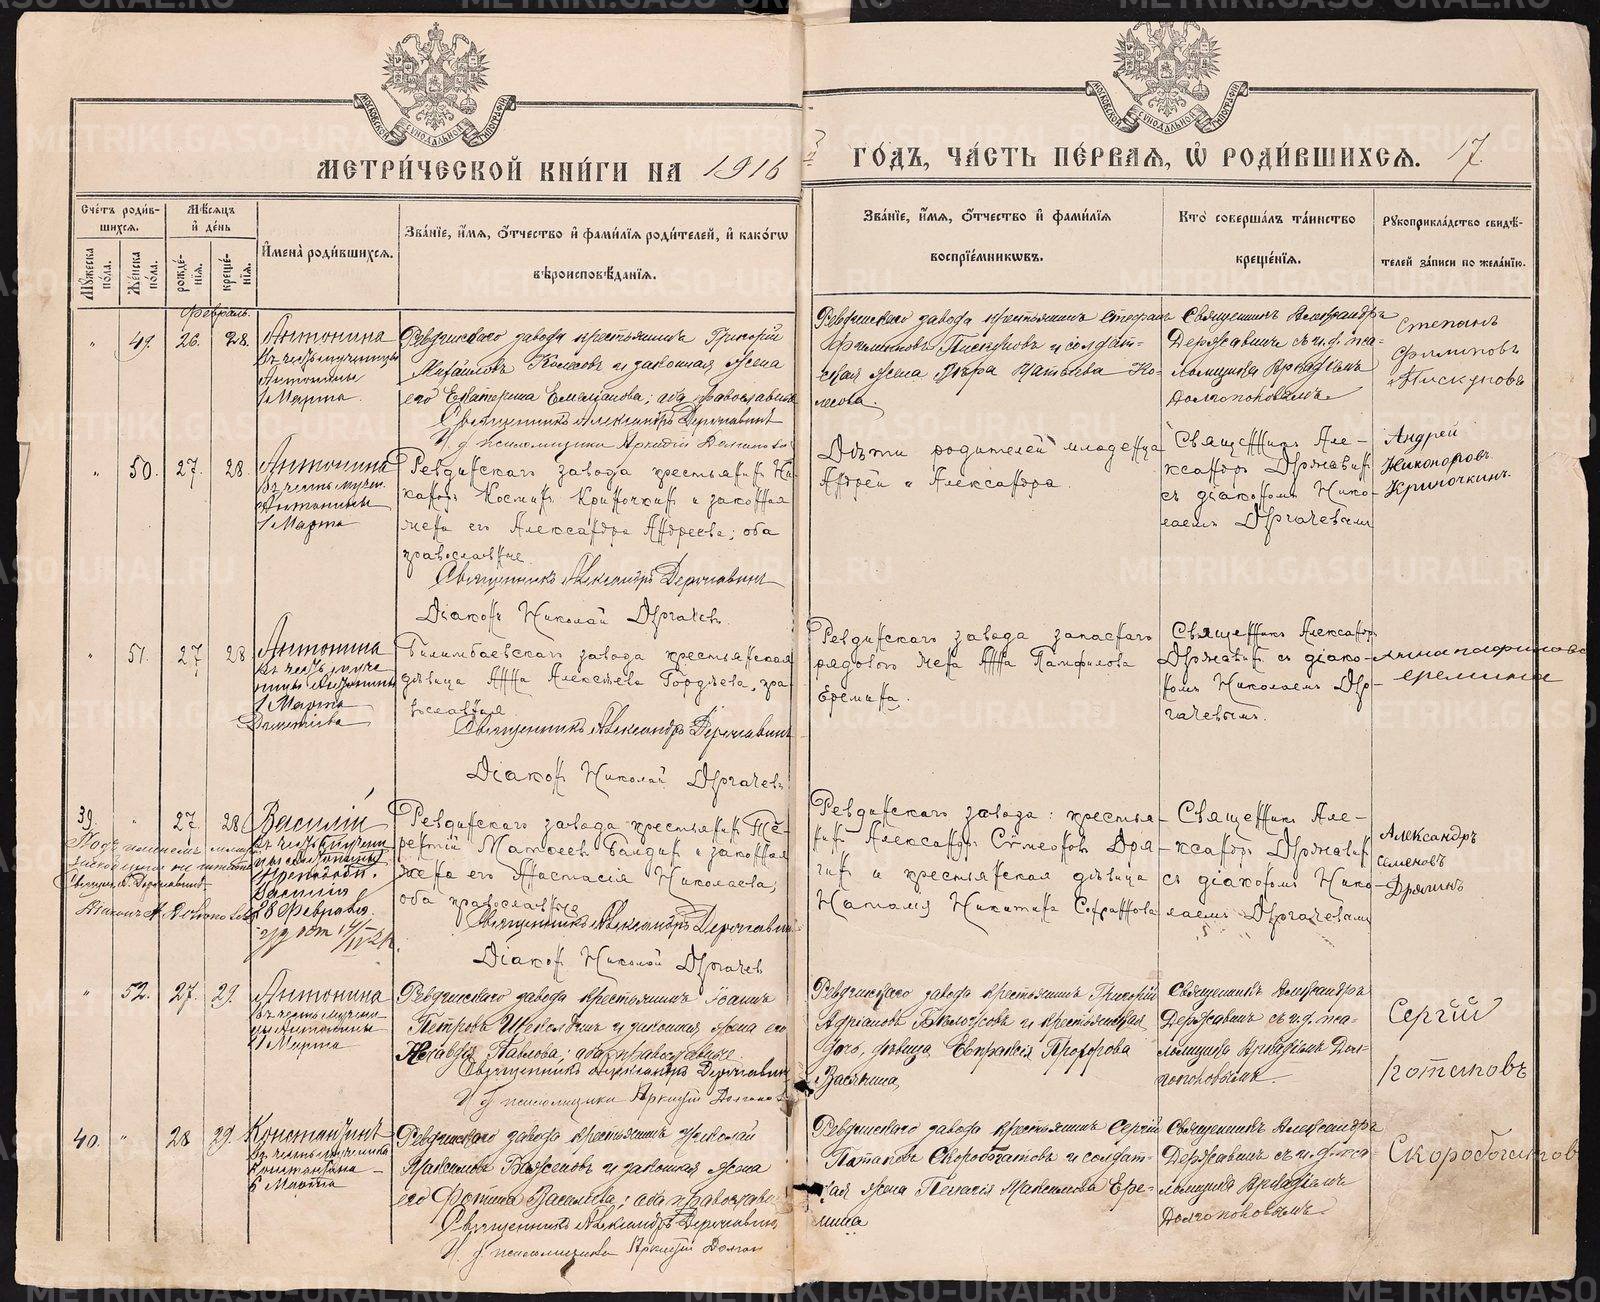 МЕТРИ́ЧЕСКОЙ КНИ́ГИ НА 1916 ГО́ДЪ, ЧА́СТЬ ПЕ́РВАЯ, Ѡ҆ РОДИ́ВШИХСЯ. 17
МОСКОВСКОЙ СѴНОДАЛЬНОЙ ТИПОГРАФІИ
МОСКОВСКОЙ СѴНОДАЛЬНОЙ ТИПОГРАФІИ
Сче́тъ роди́в-
шихся.
Мꙋжеска
по́ла.
Же́нска
по́ла.
Мѣ́сяцъ
и҆ де́нь
рожде́-
нїя.
креще́-
нїя.
И҆мена̀ роди́вшихся.
Зва́нїе, и҆́мя, ѻ҆́тчество и҆ фами́лїя роди́телей, и҆ како́гѡ
вѣроисповѣ́данїя.
Зва́нїе, и҆́мя, ѻ҆́тчество и҆ фами́лїя
воспрїе́мникѡвъ.
Кто̀ соверша́лъ та́инство
креще́нїя.
Рꙋкоприкла́дство свидѣ́-
телей за́писи по жела́нїю.
Февраль.
" 49. 26. 28.
Антонина
въ честь мученицы
Антонины
1 Марта.
Ревдинскаго завода крестьянинъ Григорій
Михайловъ Колесовъ и законная жена
его Екатерина Емельянова; оба православные
Священникъ Александръ Державинъ
И. д. псаломщика Аркадій
Ревдинскаго завода крестьянинъ Стефанъ
Филиповъ Пискуновъ и солдат-
ская жена Вѣра Матвѣева Ко-
лесова.
Священникъ Александръ
Державинъ съ и. д. пса-
ломщика Аркадіемъ
Долгополовымъ
Степанъ
Филиповъ
Пискуновъ
" 50. 27. 28.
Антонина
въ честь мучен.
Антонины
1 Марта
Ревдинскаго завода крестьянинъ Ни-
каноръ Косминъ Криночкинъ и законная
жена его Александра Андреева; оба
православные.
Священникъ Александръ Державинъ
Діаконъ Николай Дергачевъ.
Дѣти родителей младенца
Андрей и Александра.
Священникъ Але-
ксандръ Державинъ
съ діакономъ Нико-
лаемъ Дергачевымъ
Андрей
Никоноровъ
Криночкинъ.
" 51. 27 28
Антонина
въ честь муче-
ницы Антонины
1 Марта
Билимбаевскаго завода крестьянская
дѣвица Анна Алексѣева Гордѣева, пра-
вославная
Священникъ Александръ Державинъ
Діаконъ Николай Дергачевъ
Ревдинскаго завода запаснаго
рядового жена Анна Памфилова
Еремина.
Священникъ Александръ
Державинъ съ діако-
номъ Николаемъ Дер-
гачевымъ.
Анна Панфилова
Еремина
39. " 27. 28
Василій
Василія
28 Февраля.
Ревдинскаго завода крестьянинъ Те-
рентій Матвѣевъ Балдинъ и законная
жена его Анастасія Николаева;
оба православные
Священникъ Александръ Державинъ
Діаконъ Николай Дергачевъ
Ревдинскаго завода: крестья-
нинъ Александръ Симеоновъ Дря-
гинъ и крестьянская дѣвица
Наталія Никитина Софронова
Священникъ Але-
ксандръ Державинъ
съ діакономъ Нико-
лаемъ Дергачевымъ
Александръ
Семеновъ
Дрягинъ
" 52. 27. 29.
Антонина
въ честь мучени-
цы Антонины
1 Марта
Ревдинскаго завода крестьянинъ Іоаннъ
Петровъ и законная жена его
Клавдія Павлова; оба православные.
Священникъ Александръ Державинъ
И. д. псаломщика Аркадій
Ревдинскаго завода крестьянинъ Григорій
Адріановъ и крестьянская
дочь, дѣвица Евпраксія Прохорова
Васькина,
Священникъ Александръ
Державинъ съ и. д. пса-
ломщика Аркадіемъ Дол-
гополовымъ.
Сергій
Потаповъ
40. " 28 29.
Константинъ
въ честь мученика
Константина
6 Марта
Ревдинскаго завода крестьянинъ Николай
Максимовъ и законная жена
его Фотина Васильева; оба православн.
Священникъ Александръ Державинъ
И. д. псаломщика Аркадій
Ревдинскаго завода крестьянинъ Сергій
Потаповъ Скоробогатовъ и солдат-
ская жена Пелагія Максимова Ере-
мина
Священникъ Александръ
Державинъ съ и. д. пса-
ломщика Аркадіемъ
Долгополовымъ
Скоробогатовъ
METRIKI.GASO-URAL.RU